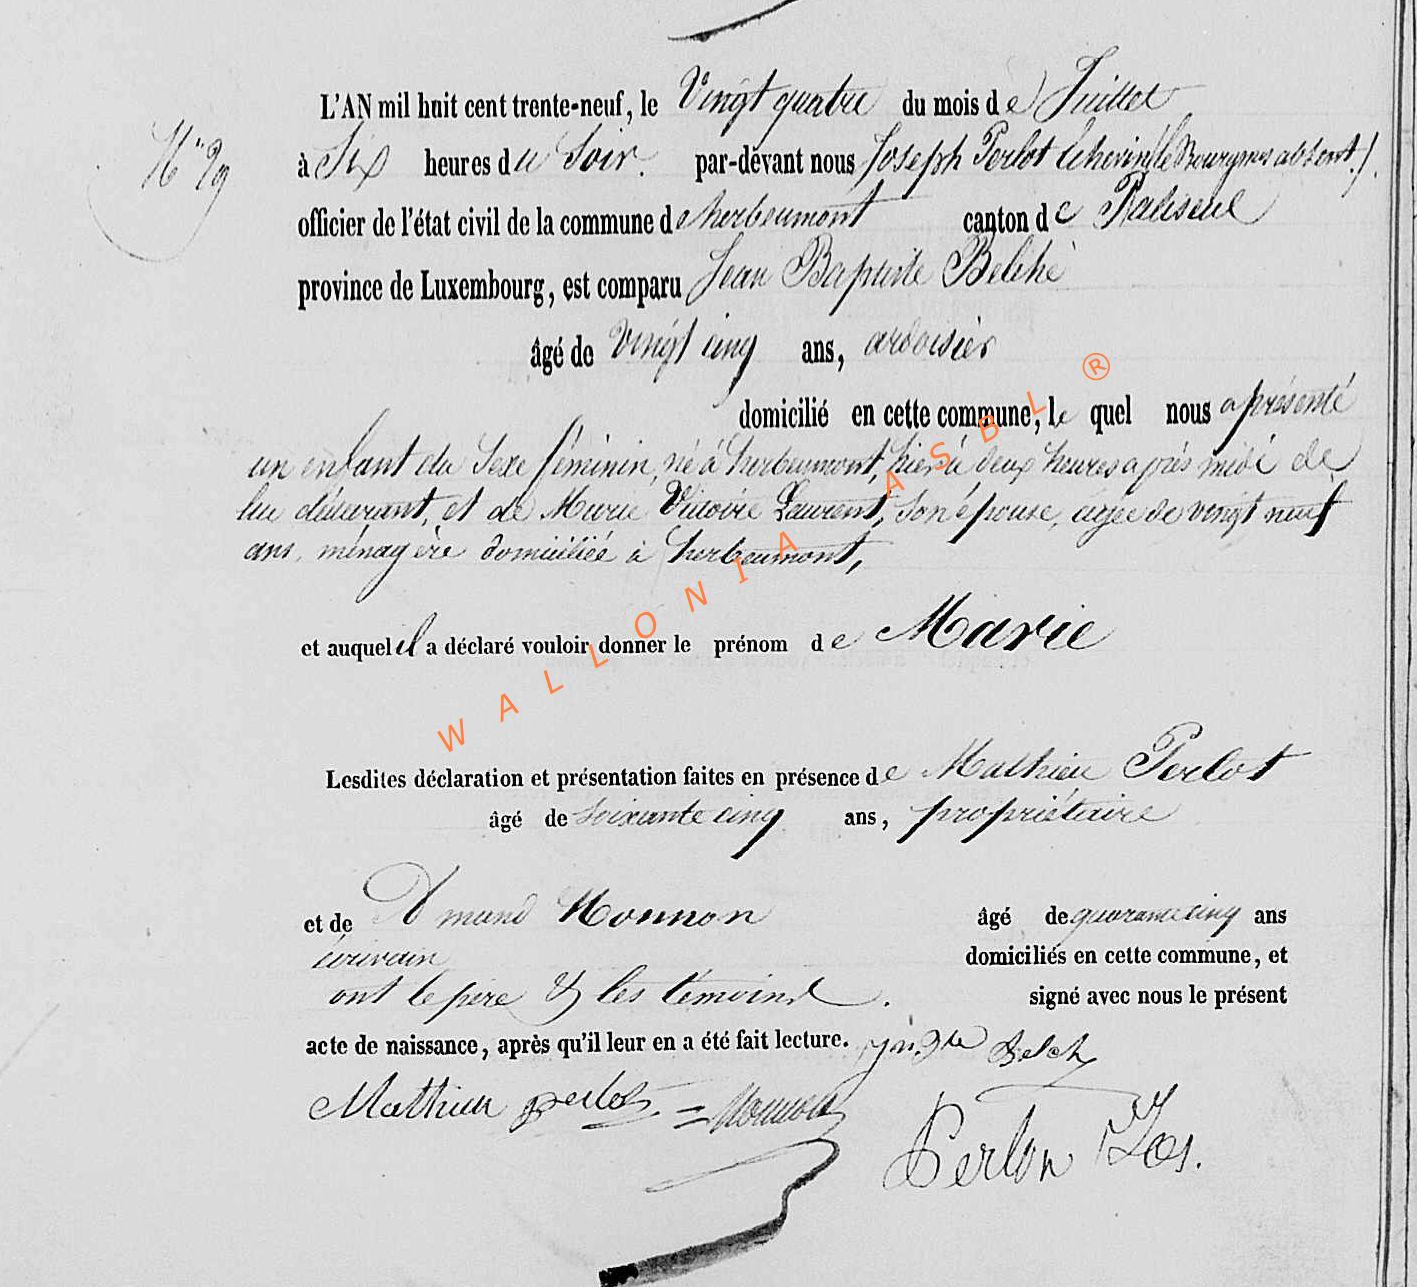 L'AN mil huit cent trente-neuf, le Vingt quatre du mois de Juillet
N° 29
à Six heures du Soir. par-devant nous Joseph Perlot Echevin (le Bourgmes absent).
officier de l'état civil de la commune de herbeumont canton de Paliseul
province de Luxembourg, est comparu Jean Baptiste Belche
âgé de Vingt cinq ans, ardoisier
domicilié en cette commune, le quel nous a présenté
un enfant du Sexe féminin, né à herbeumont, hier à deux heures après midi de
lui déclarant, et de Marie Victoire Laurent, Son épouse, agée de vingt neuf
ans, ménagère domiciliée à herbeumont,
et auquel il a déclaré vouloir donner le prénom de Marie
Lesdites déclaration et présentation faites en présence de Mathieu Perlot
âgé de soixante cinq ans, propriétaire
et de Amand Monnon âgé de quarante cinq ans
écrivain domiciliés en cette commune, et
ont le père & les témoins . signé avec nous le présent
acte de naissance, après qu'il leur en a été fait lecture. Belch
Mathieu perlot
Perlot Jos.
WALLONIA ASBL ®